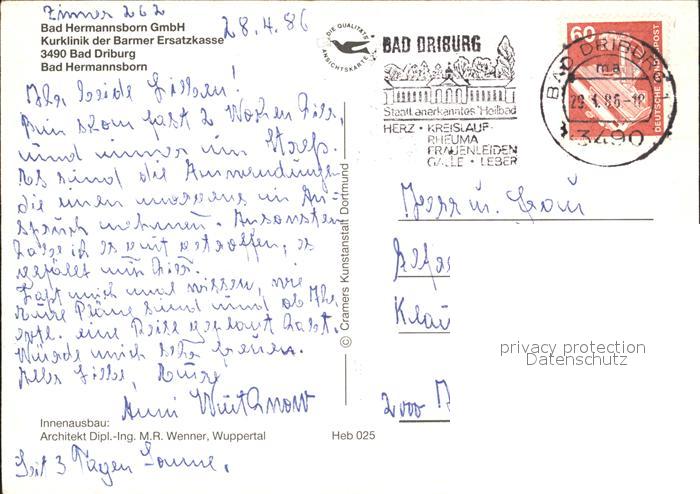 Zimmer 262
28.4.86
Bad Hermannsborn GmbH
Kurklinik der Barmer Ersatzkasse
3490 Bad Driburg
Bad Hermannsborn
Ihr beide Lieben!
Bin schon fast 2 Wochen hier,
und immer im Streß.
Es sind die Anwendungen
die einen morgens in An-
spruch nehmen. Ansonsten
habe ich es gut getroffen, es
gefällt mir hier.
Laßt mich mal wissen, wie
Eure Pläne sind und ob Ihr
evtl. eine Reise geplant habt.
Würde mich sehr freuen.
Alles Liebe, Eure
Anni
Innenausbau:
Architekt Dipl.-Ing. M.R. Wenner, Wuppertal
Heb 025
Seit 3 Tagen Sonne.
© Cramers Kunstanstalt Dortmund
DIE QUALITÄTS
ANSICHTSKARTE
BAD DRIBURG
Staatl. anerkanntes Heilbad
HERZ • KREISLAUF
RHEUMA
FRAUENLEIDEN
GALLE • LEBER
60
DEUTSCHE BUNDESPOST
BAD DRIBURG
ma
29.4.86-18
3490
Herr u. Frau
Klau
2000
privacy protection
Datenschutz